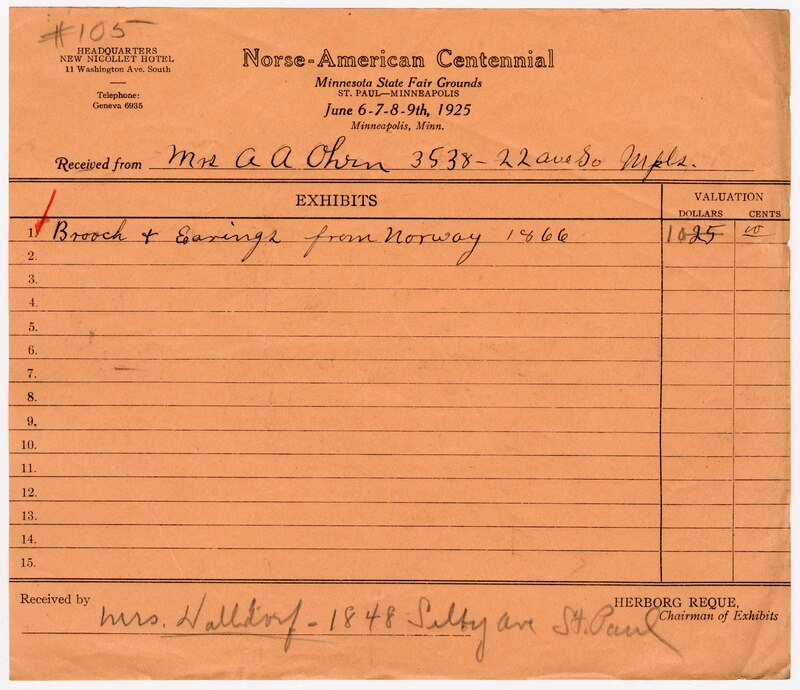 #105
HEADQUARTERS
NEW NICOLLET HOTEL
11 Washington Ave. South
Telephone:
Geneva 6935
Norse-American Centennial
Minnesota State Fair Grounds
ST. PAUL—MINNEAPOLIS
June 6-7-8-9th, 1925
Minneapolis, Minn.
Received from Mrs A A Ohrn 3538-22 ave So Mpls.
EXHIBITS
VALUATION
DOLLARS CENTS
1. Brooch & Earings from Norway 1866 25 00
2.
3.
4.
5.
6.
7.
8.
9.
10.
11.
12.
13.
14.
15.
Received by Mrs. Walldorf - 1848 Selby ave St. Paul
HERBORG REQUE,
Chairman of Exhibits